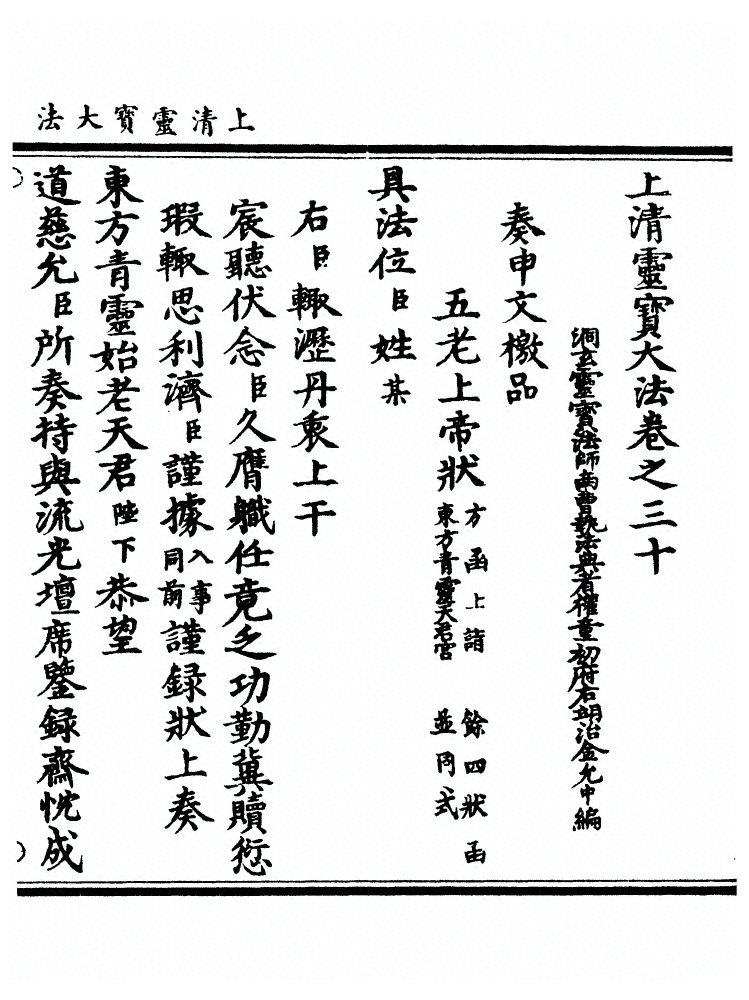 上清靈寶大法
上清靈寶大法卷之三十
洞玄靈寶法師南曹執法典者權童初府右翊治金允中編
奏申文檄品
五老上帝狀方函上詣東方青靈天君宮 餘四狀函並同式
具法位臣姓某
右臣輙瀝丹衷上干
宸聽伏念臣久膺職任竟乏功勤冀贖愆
瑕輙思利濟臣謹據入事同前謹録狀上奏
東方青靈始老天君陛下恭望
道慈允臣所奏特與流光壇席鑒録齋悦成